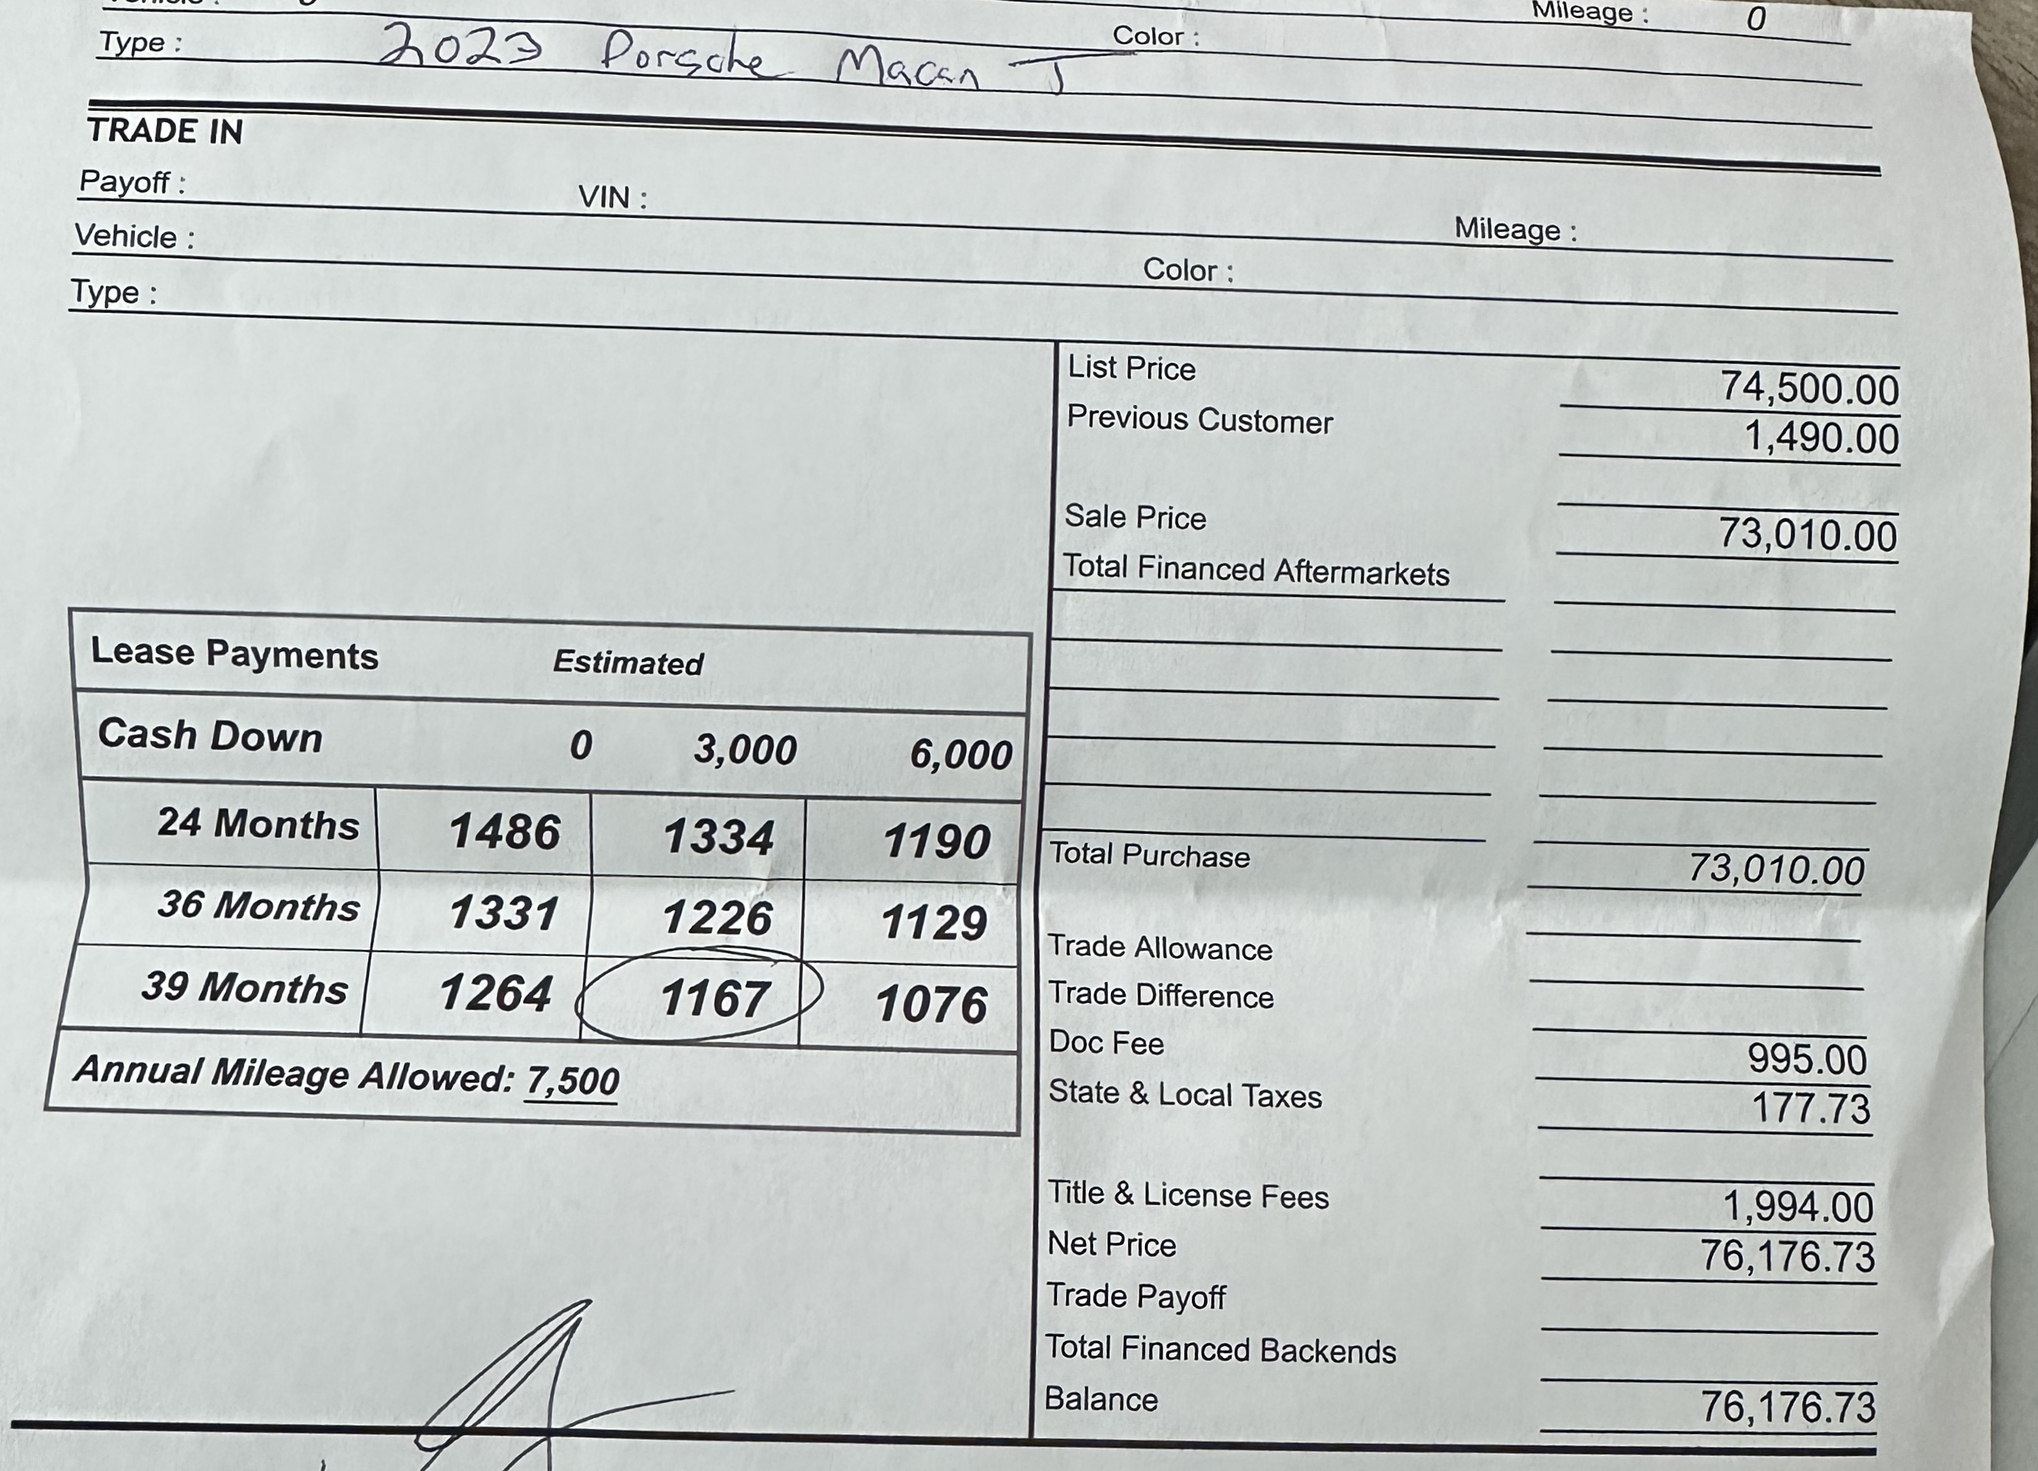 Mileage : 0
Type : 2023 Porsche Macan T Color :
TRADE IN
Payoff : VIN : Mileage :
Vehicle : Color :
Type :
List Price 74,500.00
Previous Customer 1,490.00
Sale Price 73,010.00
Total Financed Aftermarkets
Lease Payments Estimated
Cash Down 0 3,000 6,000
24 Months 1486 1334 1190
36 Months 1331 1226 1129
39 Months 1264 1167 1076
Annual Mileage Allowed: 7,500
Total Purchase 73,010.00
Trade Allowance
Trade Difference
Doc Fee 995.00
State & Local Taxes 177.73
Title & License Fees 1,994.00
Net Price 76,176.73
Trade Payoff
Total Financed Backends
Balance 76,176.73